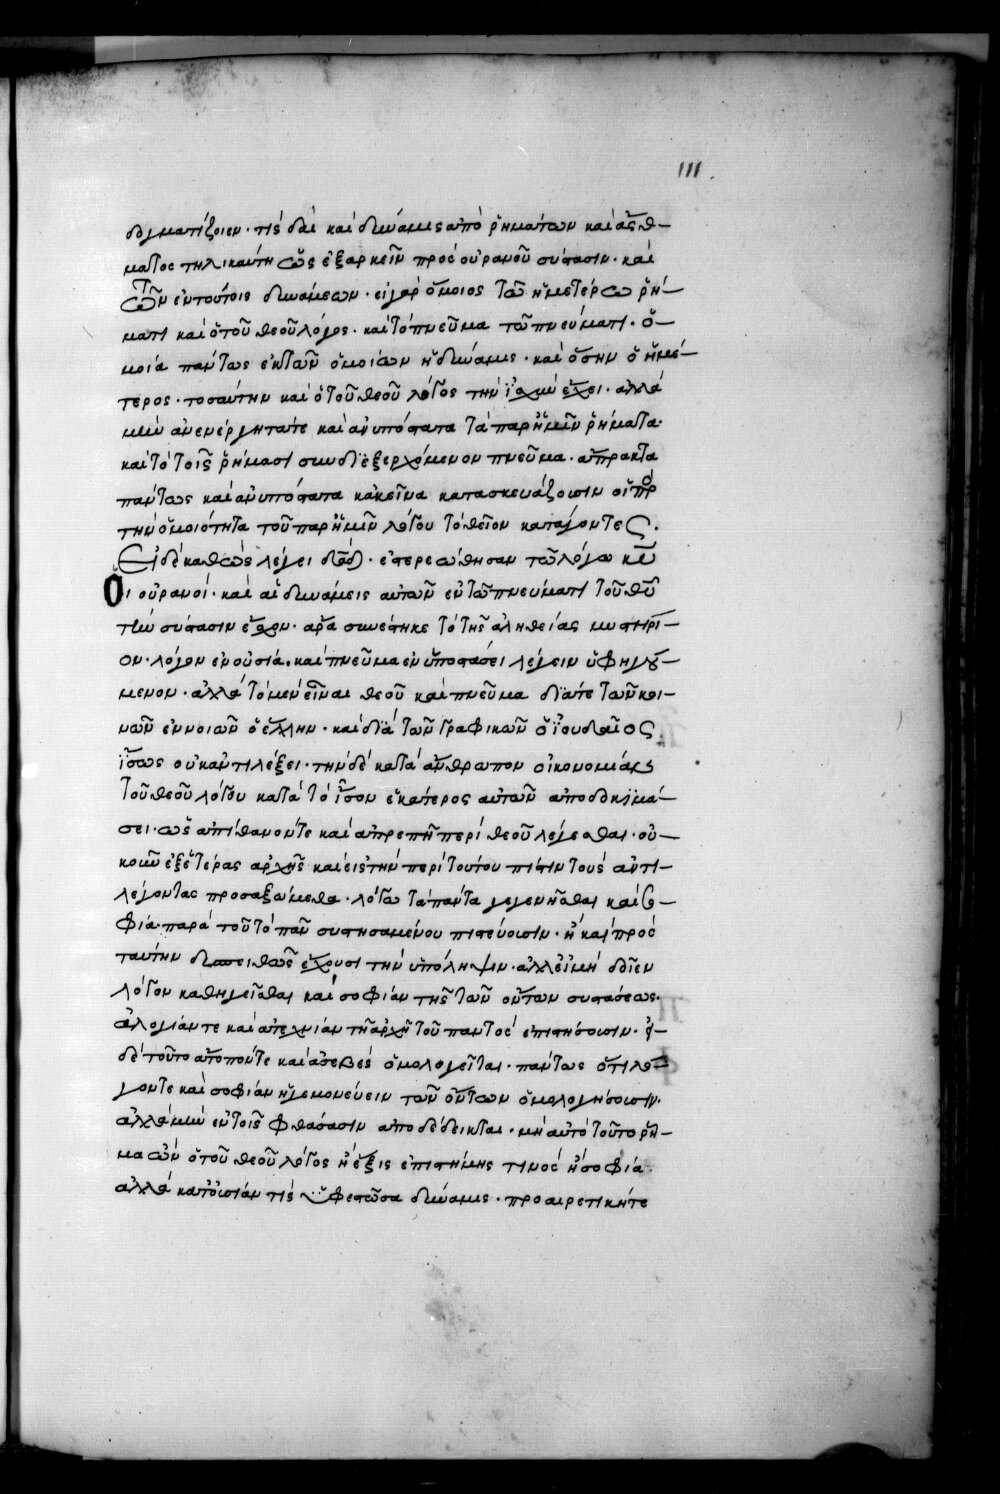 111
δογματίζοιεν · τίς δαὶ καὶ δύναμις ἀπὸ ῥημάτων καὶ ἄσθ–
ματος τηλικαύτη ὡς ἐξαρκεῖν πρὸς οὐρανοῦ σύστασιν · καὶ
τῶν ἐν τούτοις δυνάμεων · εἰ γὰρ ὅμοιος τῶ ἡμετέρω ῥή–
ματι καὶ ὁ τοῦ θεοῦ λόγος · καὶ τὸ πνεῦμα τῶ πνεύματι · ὁ–
μοία πάντως ἐκ τῶν ὁμοίων ἡ δύναμις · καὶ ὅσην ὁ ἡμέ–
τερος · τοσαύτην καὶ ὁ τοῦ θεοῦ λόγος τὴν ἰσχὺν ἔχει · ἀλλὰ
μὴν ἀνενέργητά τε καὶ ἀνυπόστατα τὰ παρ' ἡμῖν ῥήματα·
καὶ τὸ τοῖς ῥήμασι συνδιεξερχόμενον πνεῦμα · ἄπρακτα
πάντως καὶ ἀνυπόστατα κἀκεῖνα κατασκευάζουσιν οἱ πρὸ
τὴν ὁμοιότητα τοῦ παρ' ἡμῖν λόγου τὸ θεῖον κατάγοντες.
Εἰ δὲ καθὼς λέγει δᾱδ · ἐστερεώθησαν τῶ λόγω κ̅υ̅
Οἱ οὐρανοί · καὶ αἱ δυνάμεις αὐτῶν ἐν τῶ πνεύματι τοῦ θ̅υ̅
τὴν σύστασιν ἔσχον · ἄρα συνέστηκε τὸ τῆς ἀληθείας μυστήρι–
ον · λόγον ἐν οὐσία · καὶ πνεῦμα ἐν ὑποστάσει λέγειν ὑφηγού–
μενον · ἀλλὰ τὸ μὲν εἶναι θεοῦ καὶ πνεῦμα διά τε τῶν κοι–
νῶν ἐννοιῶν ὁ ἕλλην · καὶ διὰ τῶν γραφικῶν ὁ ἰουδαῖος
ἴσως οὐκ ἀντιλέξει · τὴν δὲ κατὰ ἄνθρωπον οἰκονομίαν
τοῦ θεοῦ λόγου κατὰ τὸ ἴσον ἑκάτερος αὐτῶν ἀποδοκιμά–
σει · ὡς ἀπίθανόν τε καὶ ἀπρεπῆ περὶ θεοῦ λέγεσθαι · οὐ–
κοῦν ἐξ ἑτέρας ἀρχῆς καὶ εἰς τὴν περὶ τούτου πίστιν τοὺς ἀντι–
λέγοντας προσαξώμεθα · λόγω τὰ πάντα γεγενῆσθαι καὶ σο–
φία · παρὰ τοῦ τὸ πᾶν συστησαμένου πιστεύουσιν · ἢ καὶ πρὸς
ταύτην δυσπειθῶς ἔχουσι τὴν ὑπόληψιν · ἀλλ' εἰ μὴ δοῖεν
λόγον καθηγεῖσθαι καὶ σοφίαν τῆς τῶν ὄντων συστάσεως·
ἀλογίαν τε καὶ ἀτεχνίαν τῆ ἀρχῆ τοῦ παντὸς ἐπιστήσουσιν · εἰ–
δὲ τοῦτο ἄτοπόν τε καὶ ἀσεβὲς ὁμολογεῖται · πάντως ὅτι λό–
γον τε καὶ σοφίαν ἡγεμονεύειν τῶν ὄντων ὁμολογήσουσιν·
ἀλλὰ μὴν ἐν τοῖς φθάσασιν ἀποδέδεικται · μὴ αὐτὸ τοῦτο ῥῆ–
μα ὢν ὁ τοῦ θεοῦ λόγος ἢ ἕξις ἐπιστήμης τινὸς ἢ σοφία ·
ἀλλὰ κατ' οὐσίαν τίς ὑφεστῶσα δύναμις · προαιρετική τε